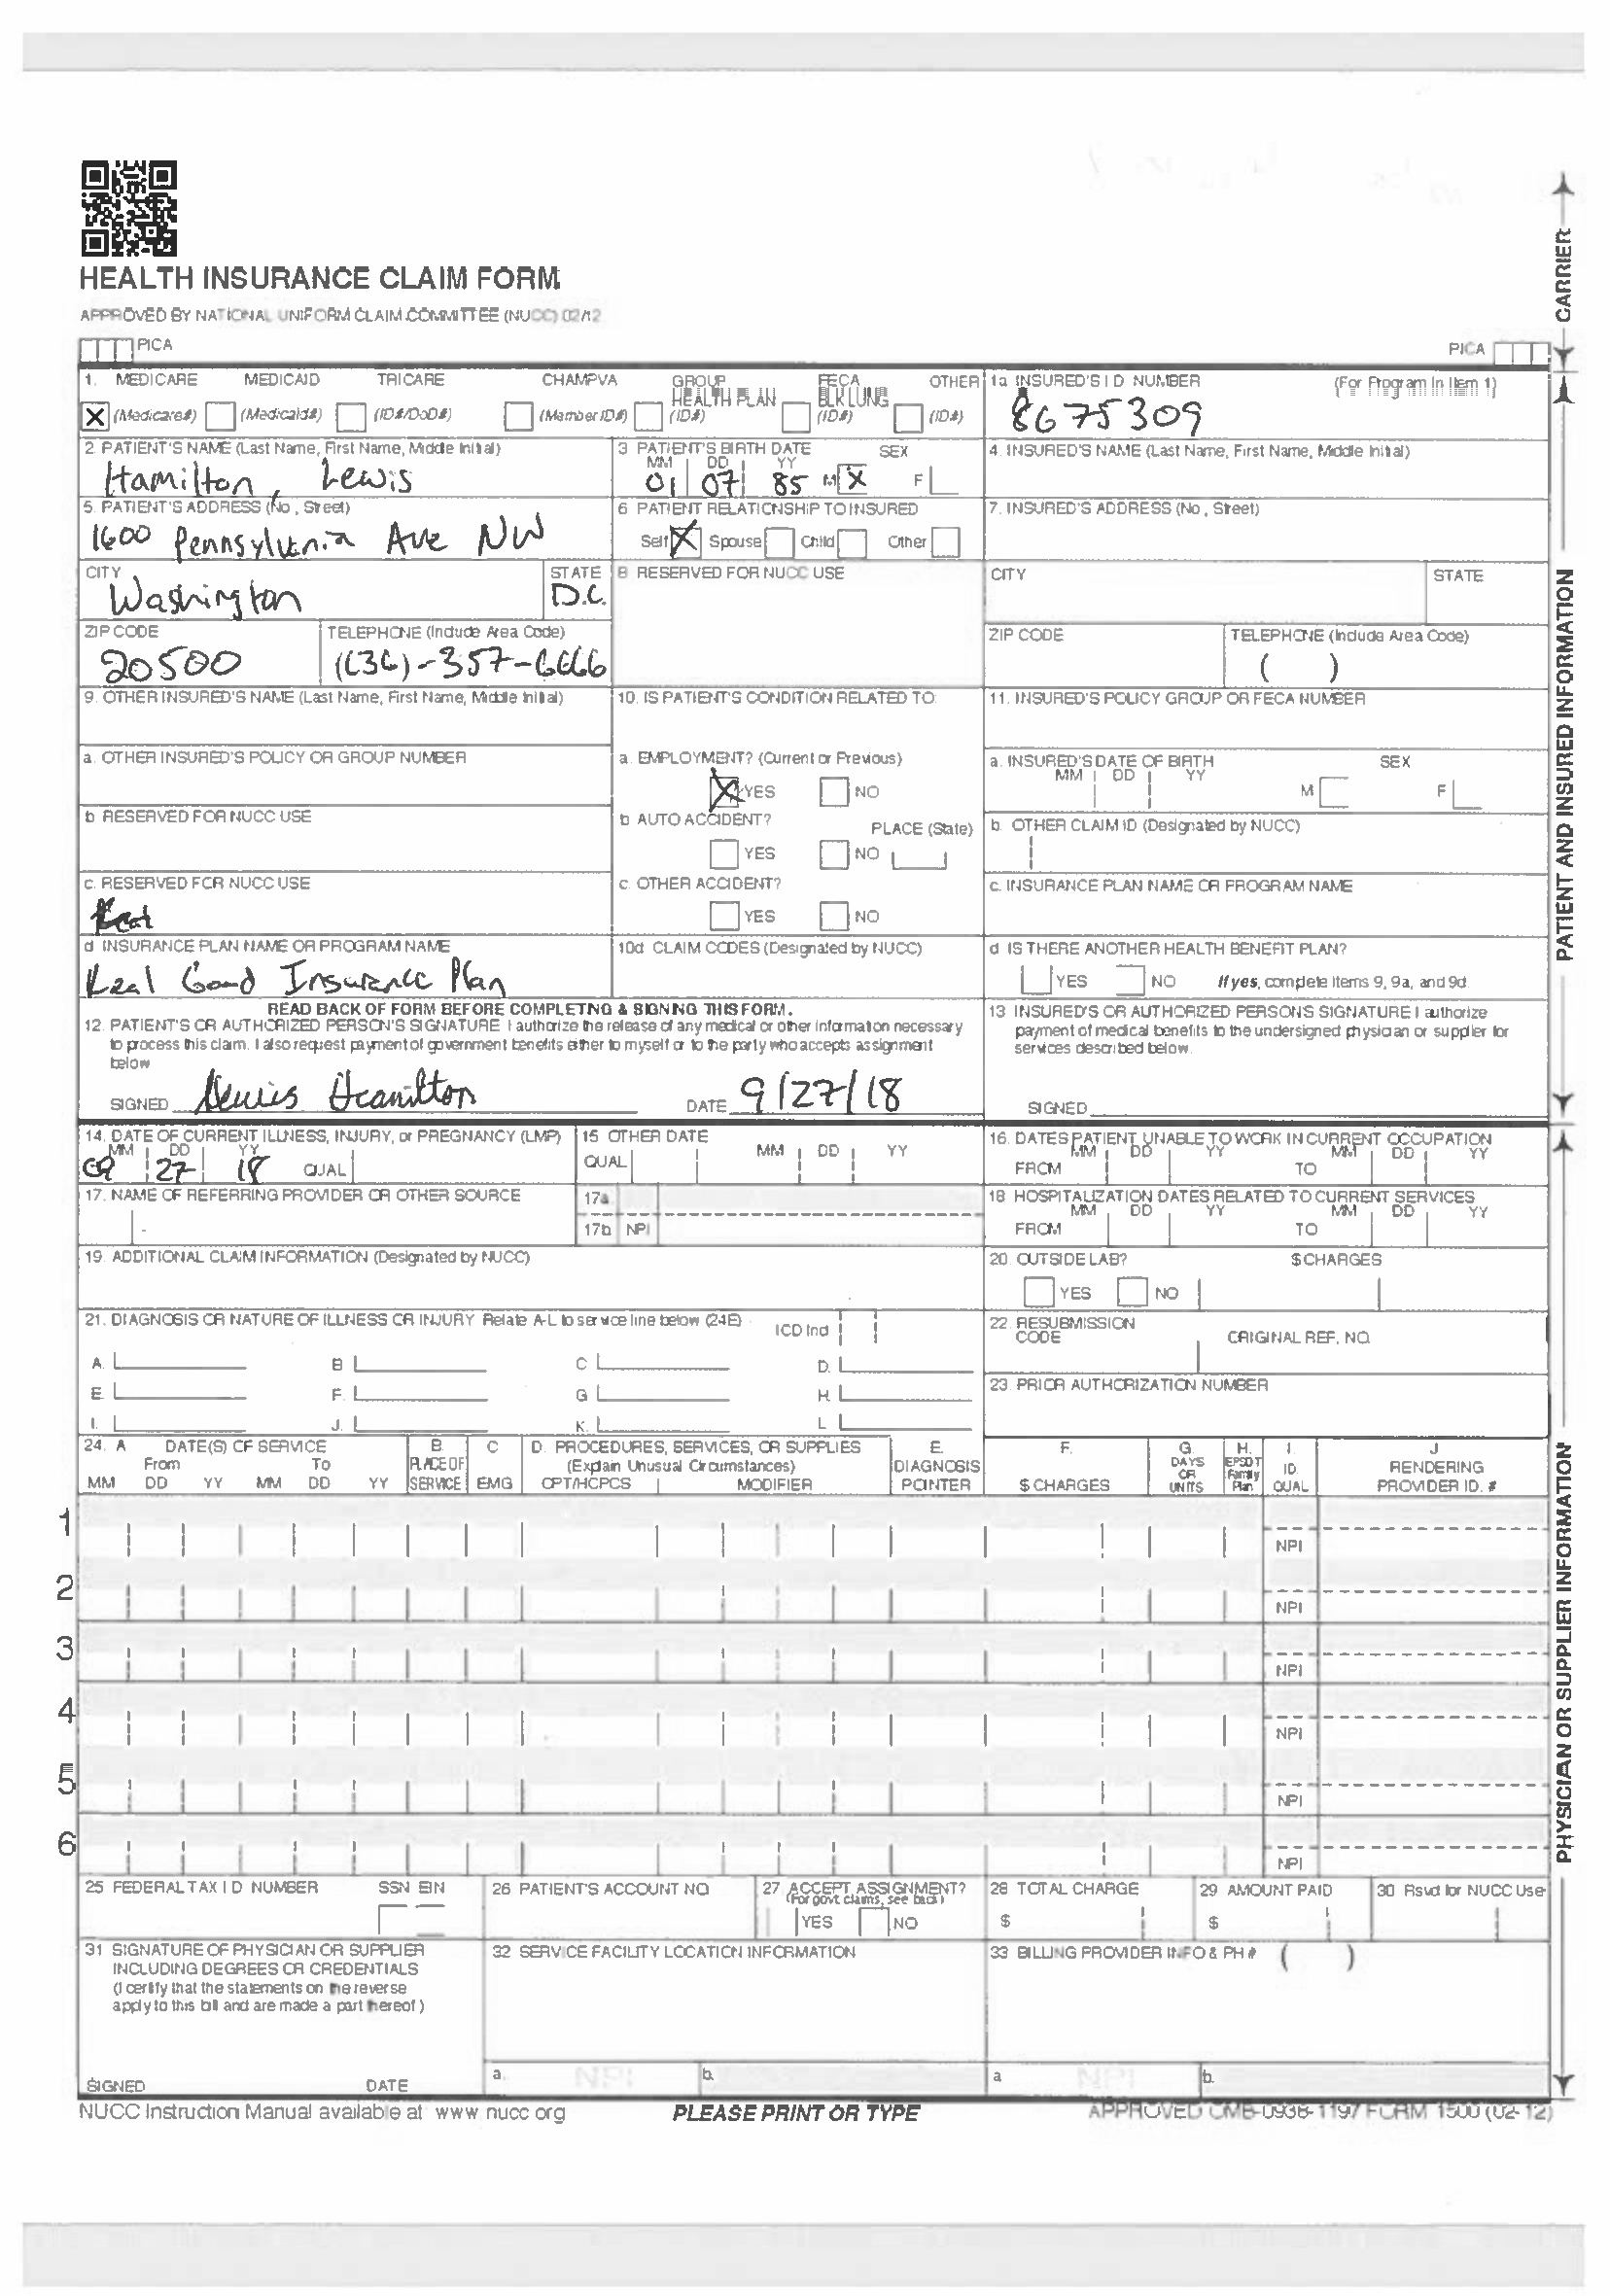 HEALTH INSURANCE CLAIM FORM
APPROVED BY NATIONAL UNIFORM CLAIM COMMITTEE (NUCC) 02/12
PICA PICA
CARRIER
1. MEDICARE MEDICAID TRICARE CHAMPVA GROUP HEALTH PLAN FECA BLK LUNG OTHER
X (Medicare#) (Medicaid#) (ID#/DoD#) (Member ID#) (ID#) (ID#) (ID#)
1a INSURED'S I D NUMBER (For Program In Item 1)
8675309
2 PATIENT'S NAME (Last Name, First Name, Middle Initial)
Hamilton, Lewis
3 PATIENT'S BIRTH DATE SEX
MM DD YY
01 07 85 M X F
4. INSURED'S NAME (Last Name, First Name, Middle Initial)
5. PATIENT'S ADDRESS (No , Street)
1600 Pennsylvania Ave NW
6 PATIENT RELATIONSHIP TO INSURED
Self X Spouse Child Other
7. INSURED'S ADDRESS (No , Street)
CITY STATE
Washington D.C.
8 RESERVED FOR NUCC USE
CITY STATE
ZIP CODE TELEPHONE (Include Area Code)
20500 (636)-357-6666
ZIP CODE TELEPHONE (Include Area Code)
( )
9. OTHER INSURED'S NAME (Last Name, First Name, Middle Initial)
10. IS PATIENT'S CONDITION RELATED TO
11. INSURED'S POLICY GROUP OR FECA NUMBER
a. OTHER INSURED'S POLICY OR GROUP NUMBER
a. EMPLOYMENT? (Current or Previous)
X YES NO
a. INSURED'S DATE OF BIRTH SEX
MM DD YY M F
b RESERVED FOR NUCC USE
b AUTO ACCIDENT? PLACE (State)
YES NO
b. OTHER CLAIM ID (Designated by NUCC)
c. RESERVED FOR NUCC USE
c. OTHER ACCIDENT?
YES NO
c. INSURANCE PLAN NAME OR PROGRAM NAME
d INSURANCE PLAN NAME OR PROGRAM NAME
Real Good Insurance Plan
10d CLAIM CODES (Designated by NUCC)
d IS THERE ANOTHER HEALTH BENEFIT PLAN?
YES NO If yes, complete items 9, 9a, and 9d
PATIENT AND INSURED INFORMATION
READ BACK OF FORM BEFORE COMPLETING & SIGNING THIS FORM.
12. PATIENT'S OR AUTHORIZED PERSON'S SIGNATURE I authorize the release of any medical or other information necessary
to process this claim. I also request payment of government benefits either to myself or to the party who accepts assignment
below
SIGNED Lewis Hamilton DATE 9/27/18
13 INSURED'S OR AUTHORIZED PERSON'S SIGNATURE I authorize
payment of medical benefits to the undersigned physician or supplier for
services described below.
SIGNED
14. DATE OF CURRENT ILLNESS, INJURY, or PREGNANCY (LMP)
MM DD YY
09 27 18 QUAL
15 OTHER DATE
QUAL MM DD YY
16. DATES PATIENT UNABLE TO WORK IN CURRENT OCCUPATION
MM DD YY MM DD YY
FROM TO
17. NAME OF REFERRING PROVIDER OR OTHER SOURCE
17a
17b NPI
18 HOSPITALIZATION DATES RELATED TO CURRENT SERVICES
MM DD YY MM DD YY
FROM TO
19. ADDITIONAL CLAIM INFORMATION (Designated by NUCC)
20. OUTSIDE LAB? $ CHARGES
YES NO
21. DIAGNOSIS OR NATURE OF ILLNESS OR INJURY Relate A-L to service line below (24E) ICD Ind
A. B C D.
E. F. G H.
I. J. K. L
22. RESUBMISSION
CODE ORIGINAL REF. NO.
23. PRIOR AUTHORIZATION NUMBER
24. A DATE(S) OF SERVICE B. C D. PROCEDURES, SERVICES, OR SUPPLIES E. F. G. H. I. J
From To PLACE OF (Explain Unusual Circumstances) DIAGNOSIS DAYS OR EPSDT Family ID. RENDERING
MM DD YY MM DD YY SERVICE EMG CPT/HCPCS MODIFIER POINTER $ CHARGES UNITS Plan QUAL PROVIDER ID. #
1 NPI
2 NPI
3 NPI
4 NPI
5 NPI
6 NPI
PHYSICIAN OR SUPPLIER INFORMATION
25 FEDERAL TAX I D NUMBER SSN EIN
26 PATIENT'S ACCOUNT NO
27 ACCEPT ASSIGNMENT?
(For govt claims, see back)
YES NO
28 TOTAL CHARGE
$
29 AMOUNT PAID
$
30 Rsvd for NUCC Use
31 SIGNATURE OF PHYSICIAN OR SUPPLIER
INCLUDING DEGREES OR CREDENTIALS
(I certify that the statements on the reverse
apply to this bill and are made a part thereof)
SIGNED DATE
32 SERVICE FACILITY LOCATION INFORMATION
a. NPI b.
33 BILLING PROVIDER INFO & PH # ( )
a NPI b.
NUCC Instruction Manual available at www nucc org
PLEASE PRINT OR TYPE
APPROVED OMB-0938-1197 FORM 1500 (02-12)